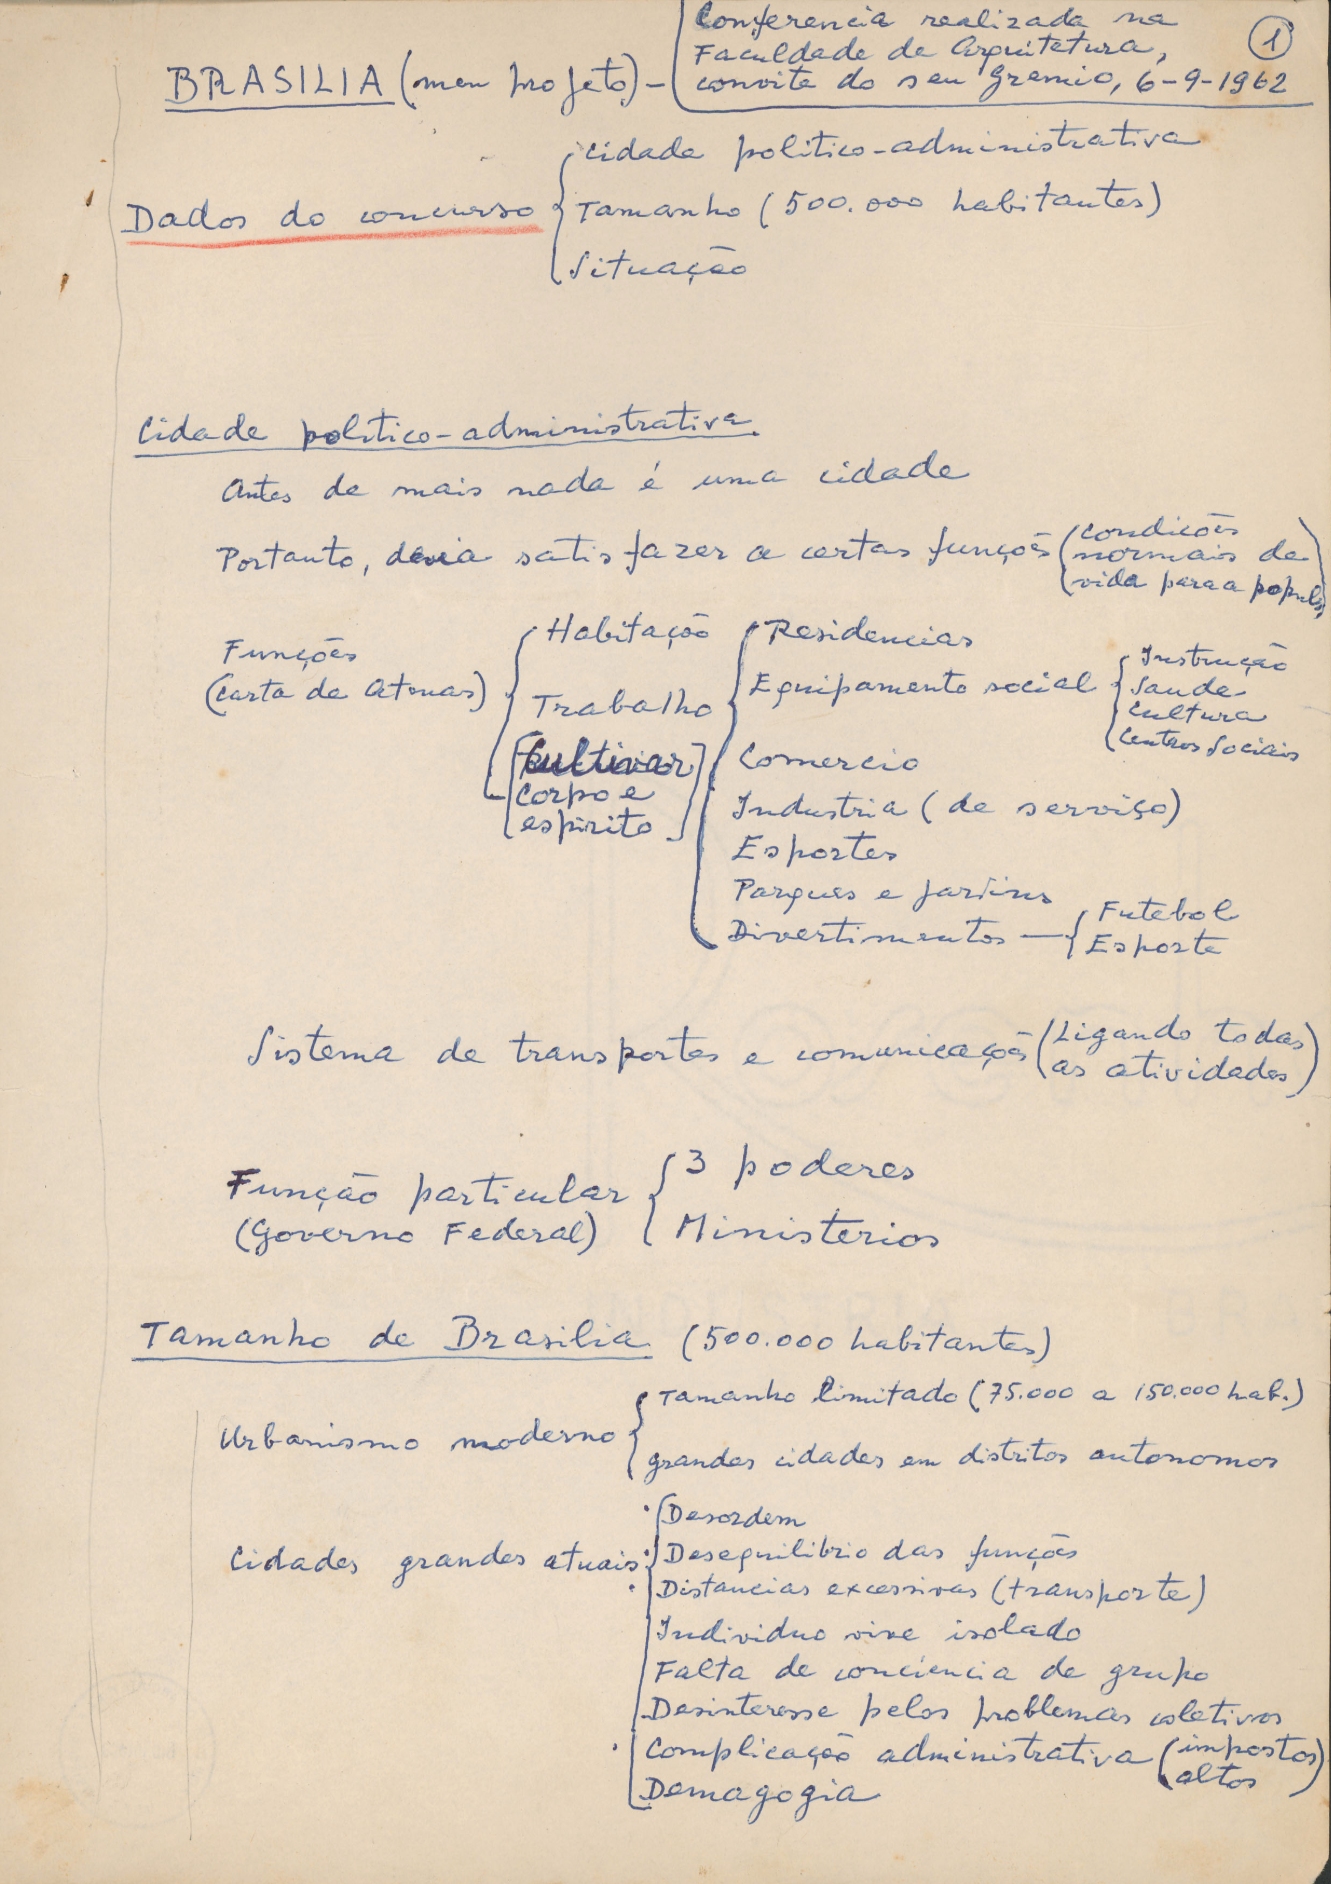 Conferencia realizada na
Faculdade de Arquitetura,
convite do seu Gremio, 6-9-1962
1
BRASILIA (meu projeto) -
Cidade politico-administrativa
Dados do concurso
Tamanho (500.000 habitantes)
Situação
Cidade politico-administrativa.
Antes de mais nada é uma cidade
Portanto, devia satisfazer a certas funções
(condicões
normais de
vida para a popul.)
Funções
(Carta de Atenas)
Habitação
Trabalho
[Cultivar
corpo e
espirito]
Residencias
Equipamento social
Instrução
Saude
Cultura
Centros Sociais
Comercio
Industria (de serviço)
Esportes
Parques e jardins
Divertimentos —
Futebol
Esporte
Sistema de transportes e comunicações
(Ligando todas
as atividades)
Função particular
(Governo Federal)
3 poderes
Ministerios
Tamanho de Brasilia (500.000 habitantes)
Urbanismo moderno
Tamanho limitado (75.000 a 150.000 hab.)
grandes cidades em distritos autonomos
Cidades grandes atuais
Desordem
Desequilibrio das funções
Distancias excessivas (transporte)
Individuo vive isolado
Falta de conciencia de grupo
Desinteresse pelos problemas coletivos
Complicação administrativa (impostos
altos)
Demagogia